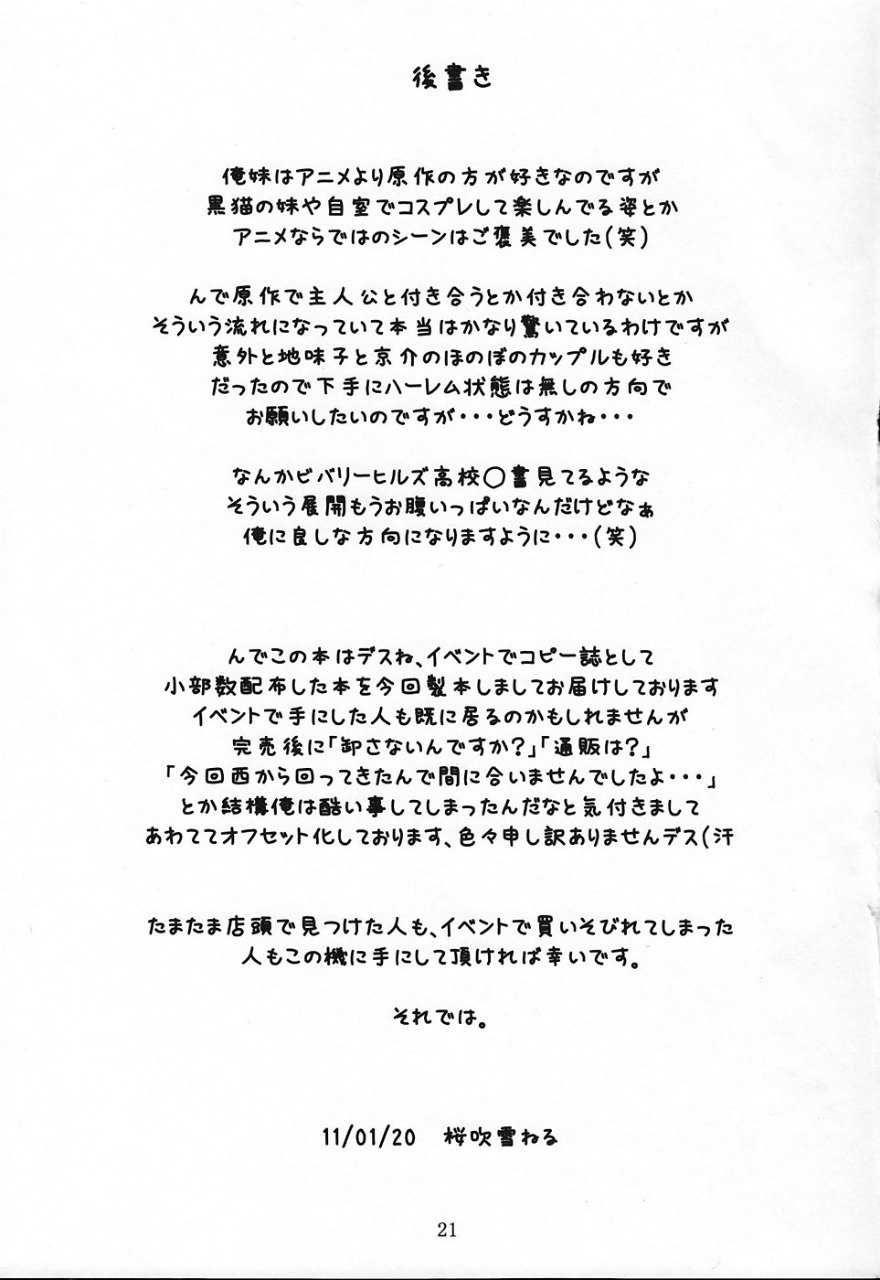 後書き
俺妹はアニメより原作の方が好きなのですが
黒猫の妹や自室でコスプレして楽しんでる姿とか
アニメならではのシーンはご褒美でした(笑)
んで原作で主人公と付き合うとか付き合わないとか
そういう流れになっていて本当はかなり驚いているわけですが
意外と地味子と京介のほのぼのカップルも好き
だったので下手にハーレム状態は無しの方向で
お願いしたいのですが・・・どうすかね・・・
なんかビバリーヒルズ高校○書見てるような
そういう展開もうお腹いっぱいなんだけどなぁ
俺に良しな方向になりますように・・・(笑)
んでこの本はデスね、イベントでコピー誌として
小部数配布した本を今回製本しましてお届けしております
イベントで手にした人も既に居るのかもしれませんが
完売後に「卸さないんですか?」「通販は?」
「今回西から回ってきたんで間に合いませんでしたよ・・・」
とか結構俺は酷い事してしまったんだなと気付きまして
あわててオフセット化しております、色々申し訳ありませんデス(汗
たまたま店頭で見つけた人も、イベントで買いそびれてしまった
人もこの機に手にして頂ければ幸いです。
それでは。
11/01/20 桜吹雪ねる
21